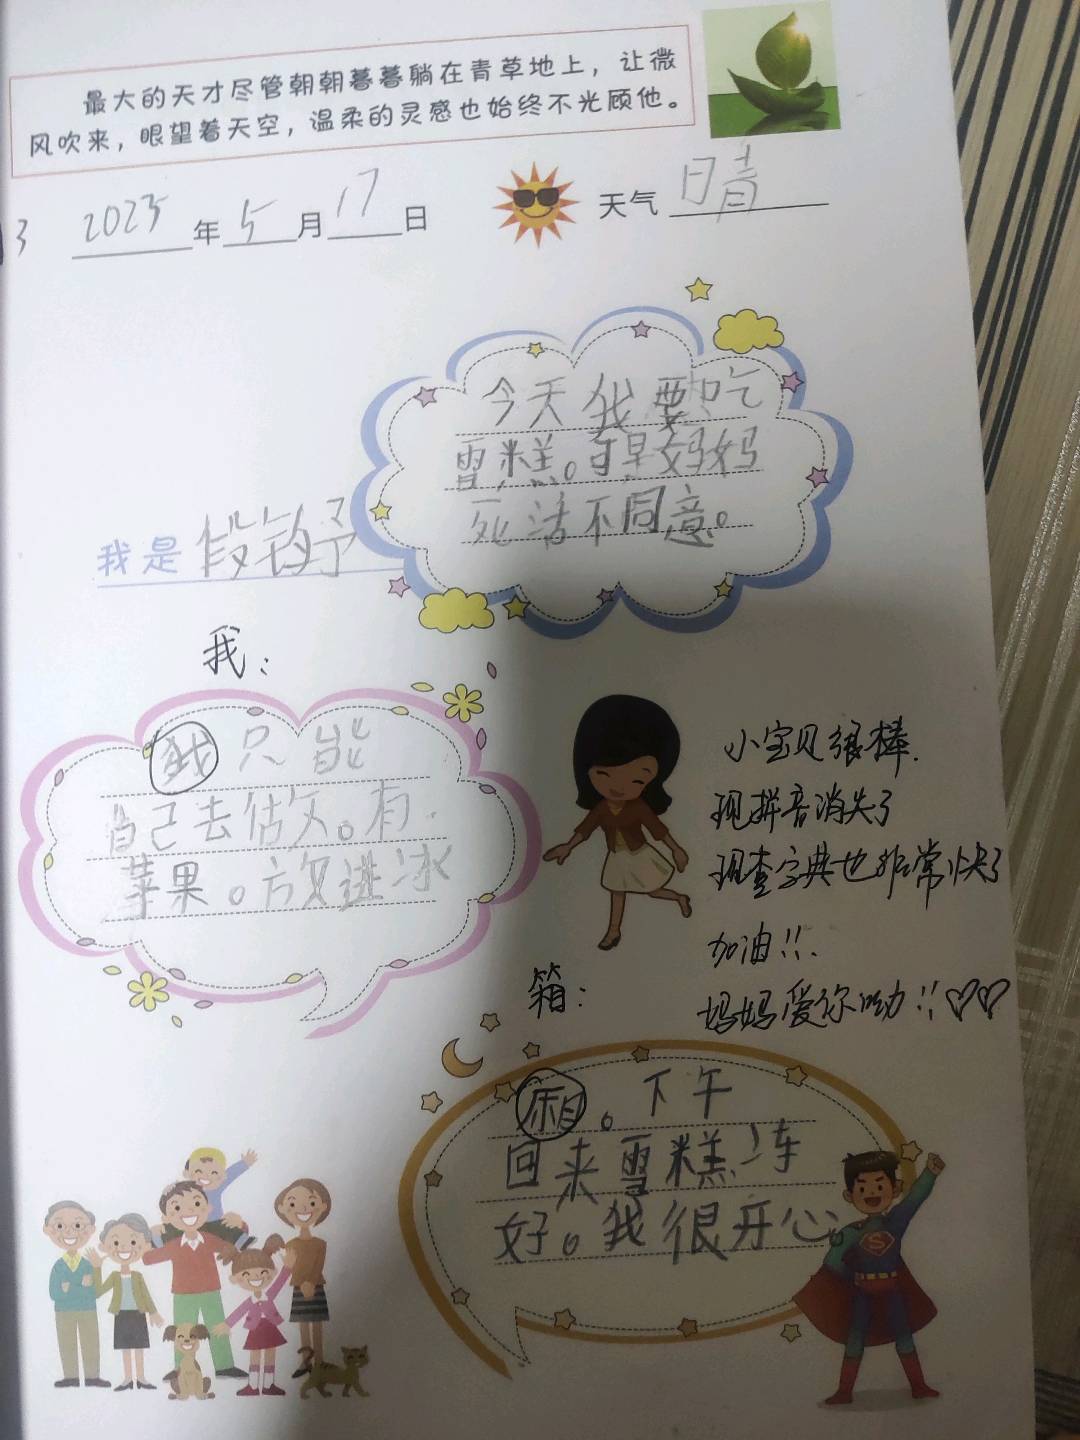 最大的天才尽管朝朝暮暮躺在青草地上，让微
风吹来，眼望着天空，温柔的灵感也始终不光顾他。
3 2023年5月17日 天气 晴
今天我要吃
雪糕。可是妈妈
死活不同意。
我是
我：
我只能
自己去做。有
苹果。放进冰
小宝贝很棒.
现拼音消失了
现查字典也非常快了
加油!!
妈妈爱你呦!!♡♡
箱：
厢。下午
回来雪糕冻
好。我很开心。
S